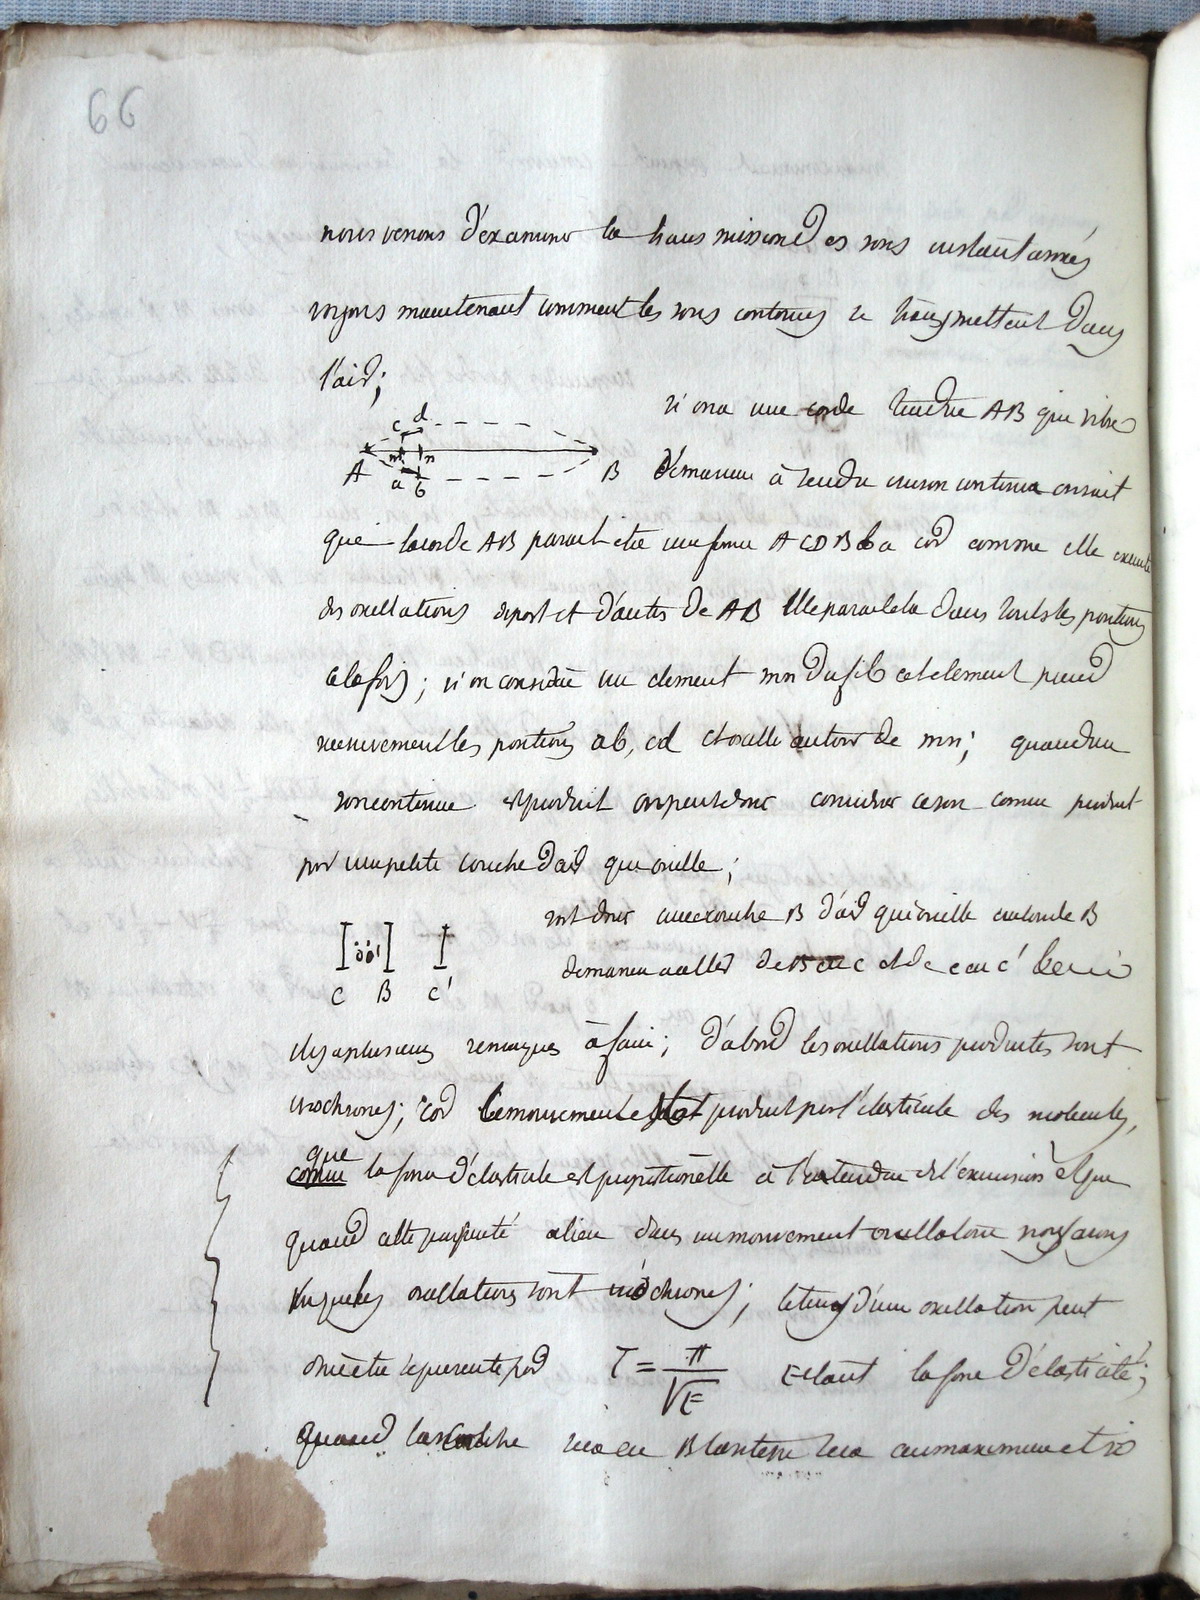 66
nous venons d'examiner la transmission des sons instantanés
voyons maintenant comment les sons continus se transmettent dans
l'air;
si on a une corde tendue AB qui vibre
c d
A m n B
a b
de maniere à rendre un son continue on sait
que la corde AB parait etre une forme ACDBba car comme elle execute
des oscillations de part et d'autre de AB elle parait etre dans toutes les positions
a la fois; si on considere un element mn du fil cet element prend
successivement les positions ab, cd et oscille autour de mn; quand un
son continue est produit on peut donc considerer ce son comme produit
par une petite couche d'air qui oscille;
soit donc une couche B d'air qui oscille autour de B
C B C'
de maniere a aller de B en c et de c en c'
il y a plusieurs remarques à faire; d'abord les oscillations produites sont
isochrones; car le mouvement est produit par l'elasticite des molecules,
que
comme la force d'élasticite est proportionelle a l'etendue de l'excursion et que
quand cette propriété a lieu dans un mouvement oscillatoire nous savons
que les oscillations sont isochrones; le tems d'une oscillation peut
etre represente par T = π/√E E etant la force d'élasticité;
quand la couche sera en B la vitesse sera au maximum et si